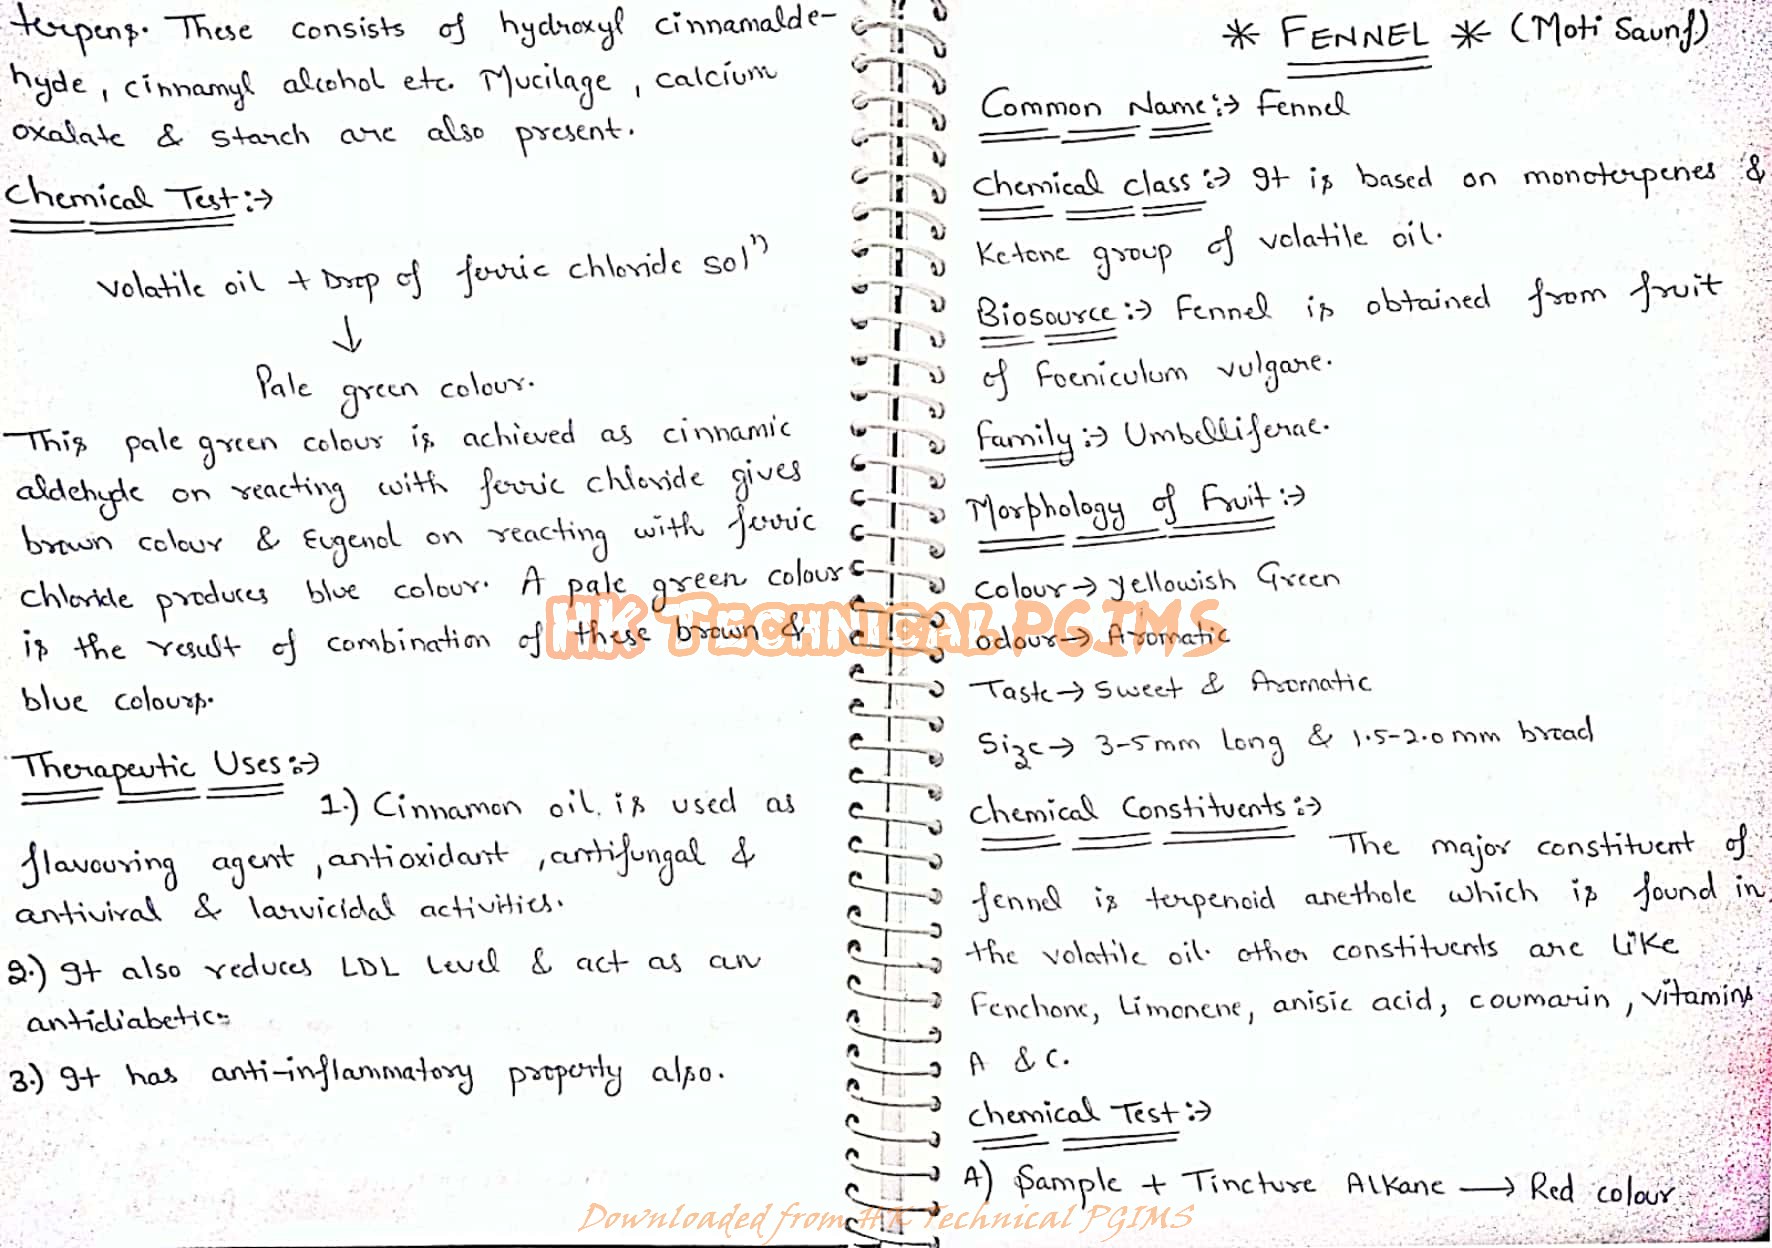 terpens. These consists of hydroxyl cinnamalde-
hyde, cinnamyl alcohol etc. Mucilage, calcium
oxalate & starch are also present.
Chemical Test:→
Volatile oil + Drop of ferric chloride solⁿ
↓
Pale green colour.
This pale green colour is achieved as cinnamic
aldehyde on reacting with ferric chloride gives
brown colour & Eugenol on reacting with ferric
chloride produces blue colour. A pale green colour
is the result of combination of these brown &
blue colours.
Therapeutic Uses:→
1.) Cinnamon oil is used as
flavouring agent, antioxidant, antifungal &
antiviral & larvicidal activities.
2.) It also reduces LDL level & act as an
antidiabetic.
3.) It has anti-inflammatory property also.
* FENNEL * (Moti Saunf)
Common Name:→ Fennel
Chemical class:→ It is based on monoterpenes &
Ketone group of volatile oil.
Biosource:→ Fennel is obtained from fruit
of Foeniculum vulgare.
Family:→ Umbelliferae.
Morphology of Fruit:→
Colour→ yellowish Green
odour→ Aromatic
Taste→ Sweet & Aromatic
Size→ 3-5mm long & 1.5-2.0mm broad
Chemical Constituents:→
The major constituent of
fennel is terpenoid anethole which is found in
the volatile oil. other constituents are like
Fenchone, Limonene, anisic acid, coumarin, vitamins
A & C.
Chemical Test:→
A) Sample + Tincture Alkane → Red colour
HK Technical PGIMS
Downloaded from HK Technical PGIMS